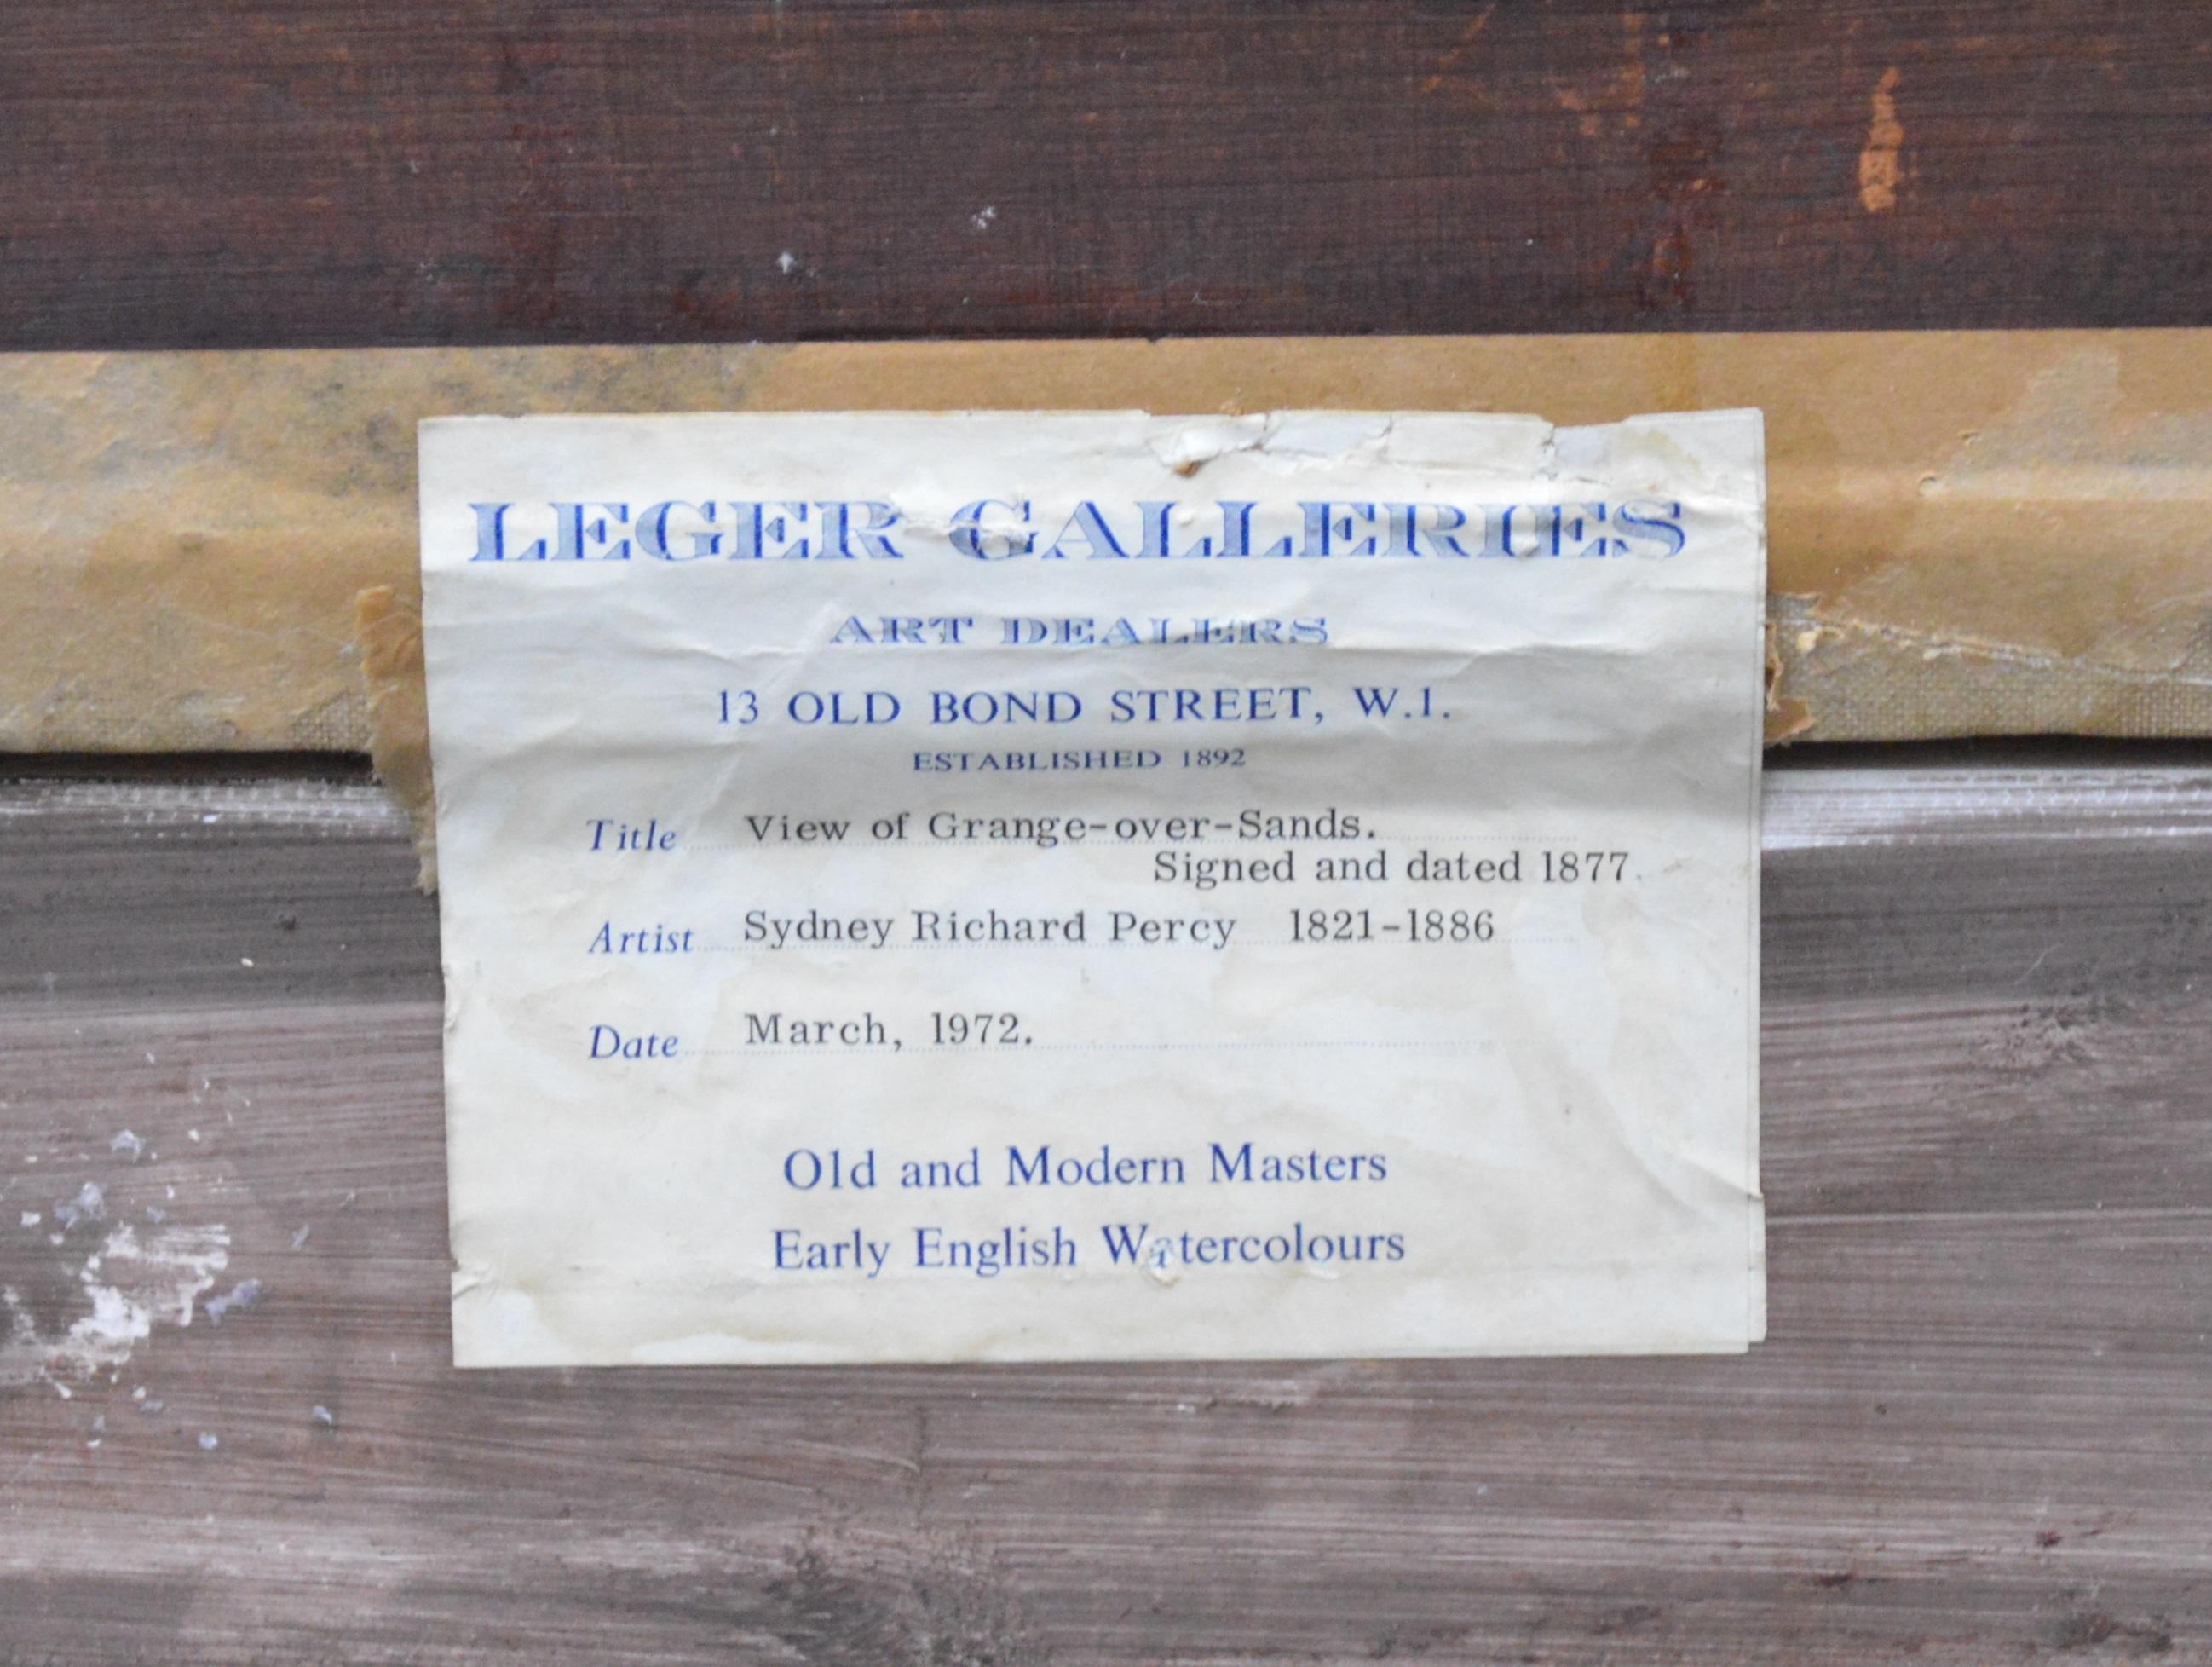 LEGER GALLERIES
ART DEALERS
13 OLD BOND STREET, W.1.
ESTABLISHED 1892
Title View of Grange-over-Sands.
Signed and dated 1877.
Artist Sydney Richard Percy 1821-1886
Date March, 1972.
Old and Modern Masters
Early English Watercolours